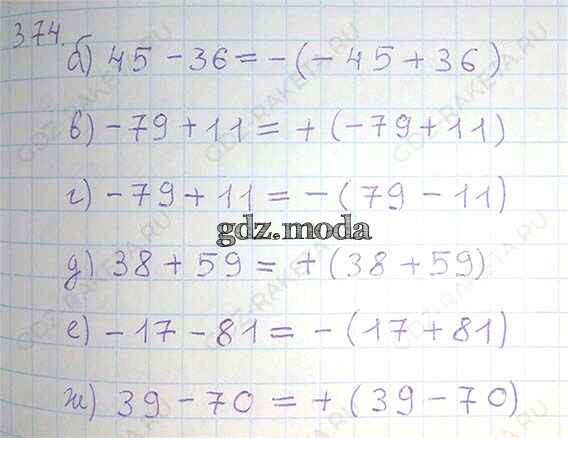 374.
б) 45 - 36 = - (- 45 + 36)
в) - 79 + 11 = + (- 79 + 11)
г) - 79 + 11 = - (79 - 11)
gdz.moda
д) 38 + 59 = + (38 + 59)
е) - 17 - 81 = - (17 + 81)
ж) 39 - 70 = + (39 - 70)